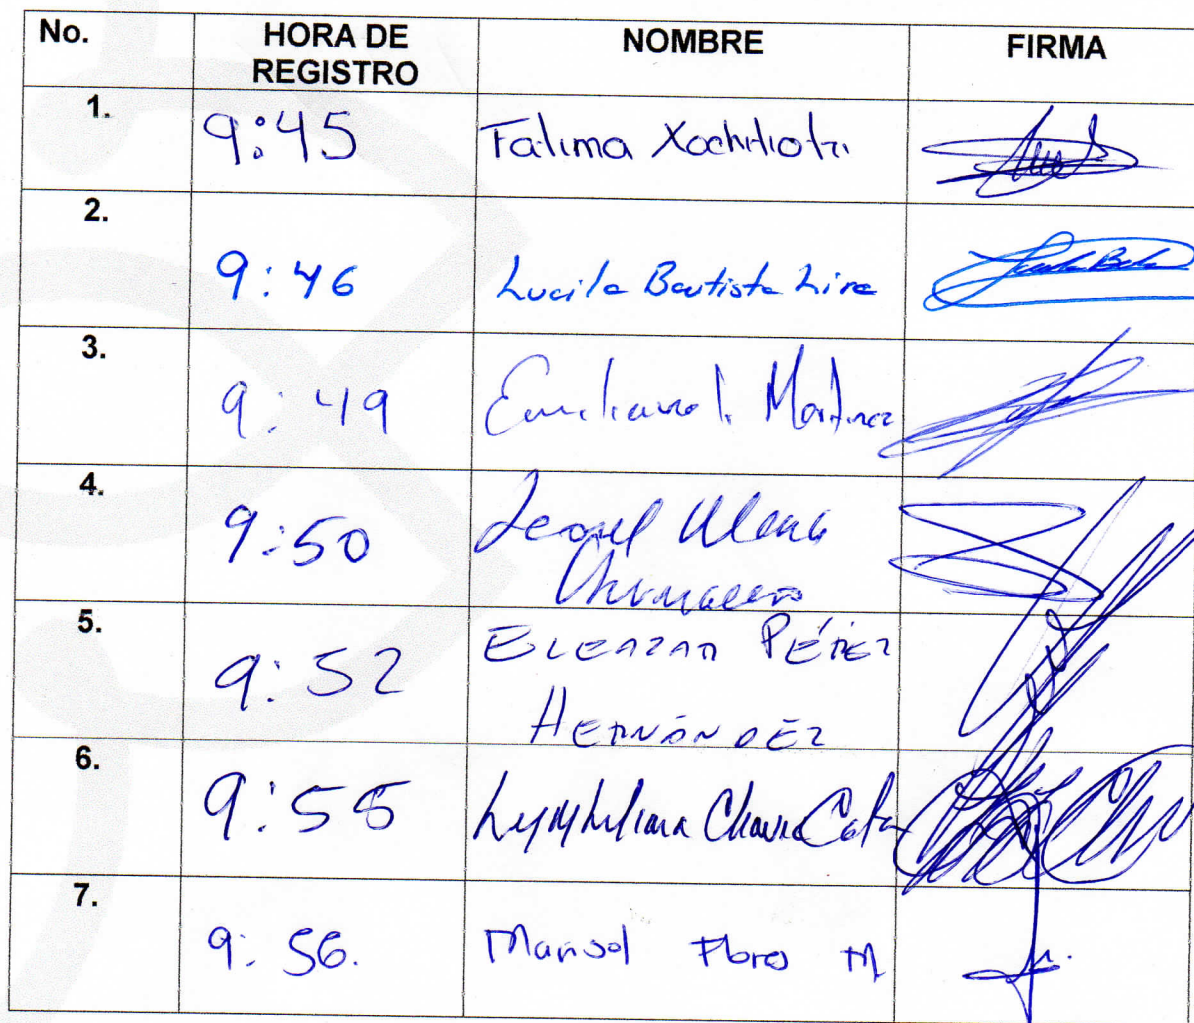 No. HORA DE REGISTRO NOMBRE FIRMA
1. 9:45 Fatima Xochitiotzi
2. 9:46 Lucila Bautista Lira
3. 9:49 Emiliano Martinez
4. 9:50 Leonel
5. 9:52 ELEAZAR PÉREZ
HERNÁNDEZ
6. 9:55
7. 9:56. Marisol Flores M